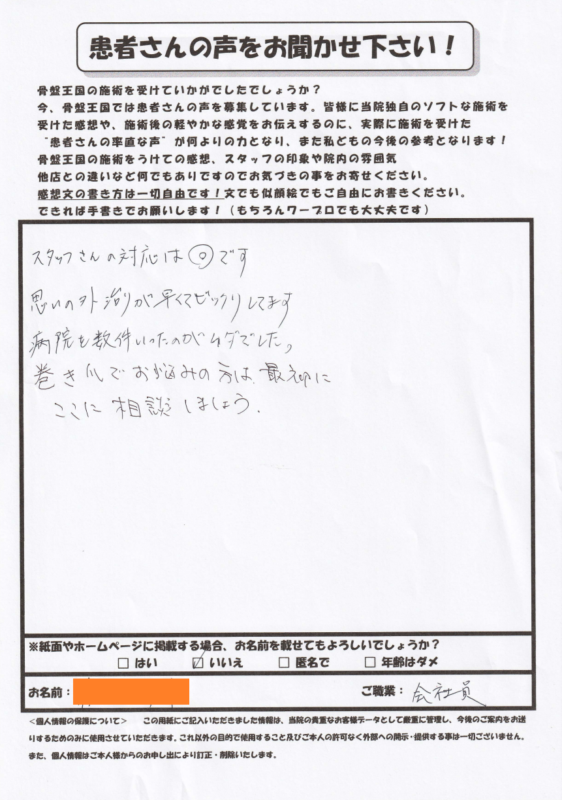 患者さんの声をお聞かせ下さい！
骨盤王国の施術を受けていかがでしたでしょうか？
今、骨盤王国では患者さんの声を募集しています。皆様に当院独自のソフトな施術を
受けた感想や、施術後の軽やかな感覚をお伝えするのに、実際に施術を受けた
"患者さんの率直な声"が何よりの力となり、また私どもの今後の参考となります！
骨盤王国の施術をうけての感想、スタッフの印象や院内の雰囲気
他店との違いなど何でもありですのでお気づきの事をお寄せください。
感想文の書き方は一切自由です！文でも似顔絵でもご自由にお書きください。
できれば手書きでお願いします！（もちろんワープロでも大丈夫です）
スタッフさんの対応は◎です
思いの外治りが早くてビックリしてます
病院も数件いったのがムダでした。
巻き爪でお悩みの方は最初に
ここに相談しましょう.
※紙面やホームページに掲載する場合、お名前を載せてもよろしいでしょうか？
□ はい ☑ いいえ □ 匿名で □ 年齢はダメ
お名前： ご職業： 会社員
＜個人情報の保護について＞ この用紙にご記入いただきました情報は、当院の貴重なお客様データとして厳重に管理し、今後のご案内をお送
りするためのみに使用させていただきます。これ以外の目的で使用すること及びご本人の許可なく外部への開示・提供する事は一切ございません。
また、個人情報はご本人様からのお申し出により訂正・削除いたします。